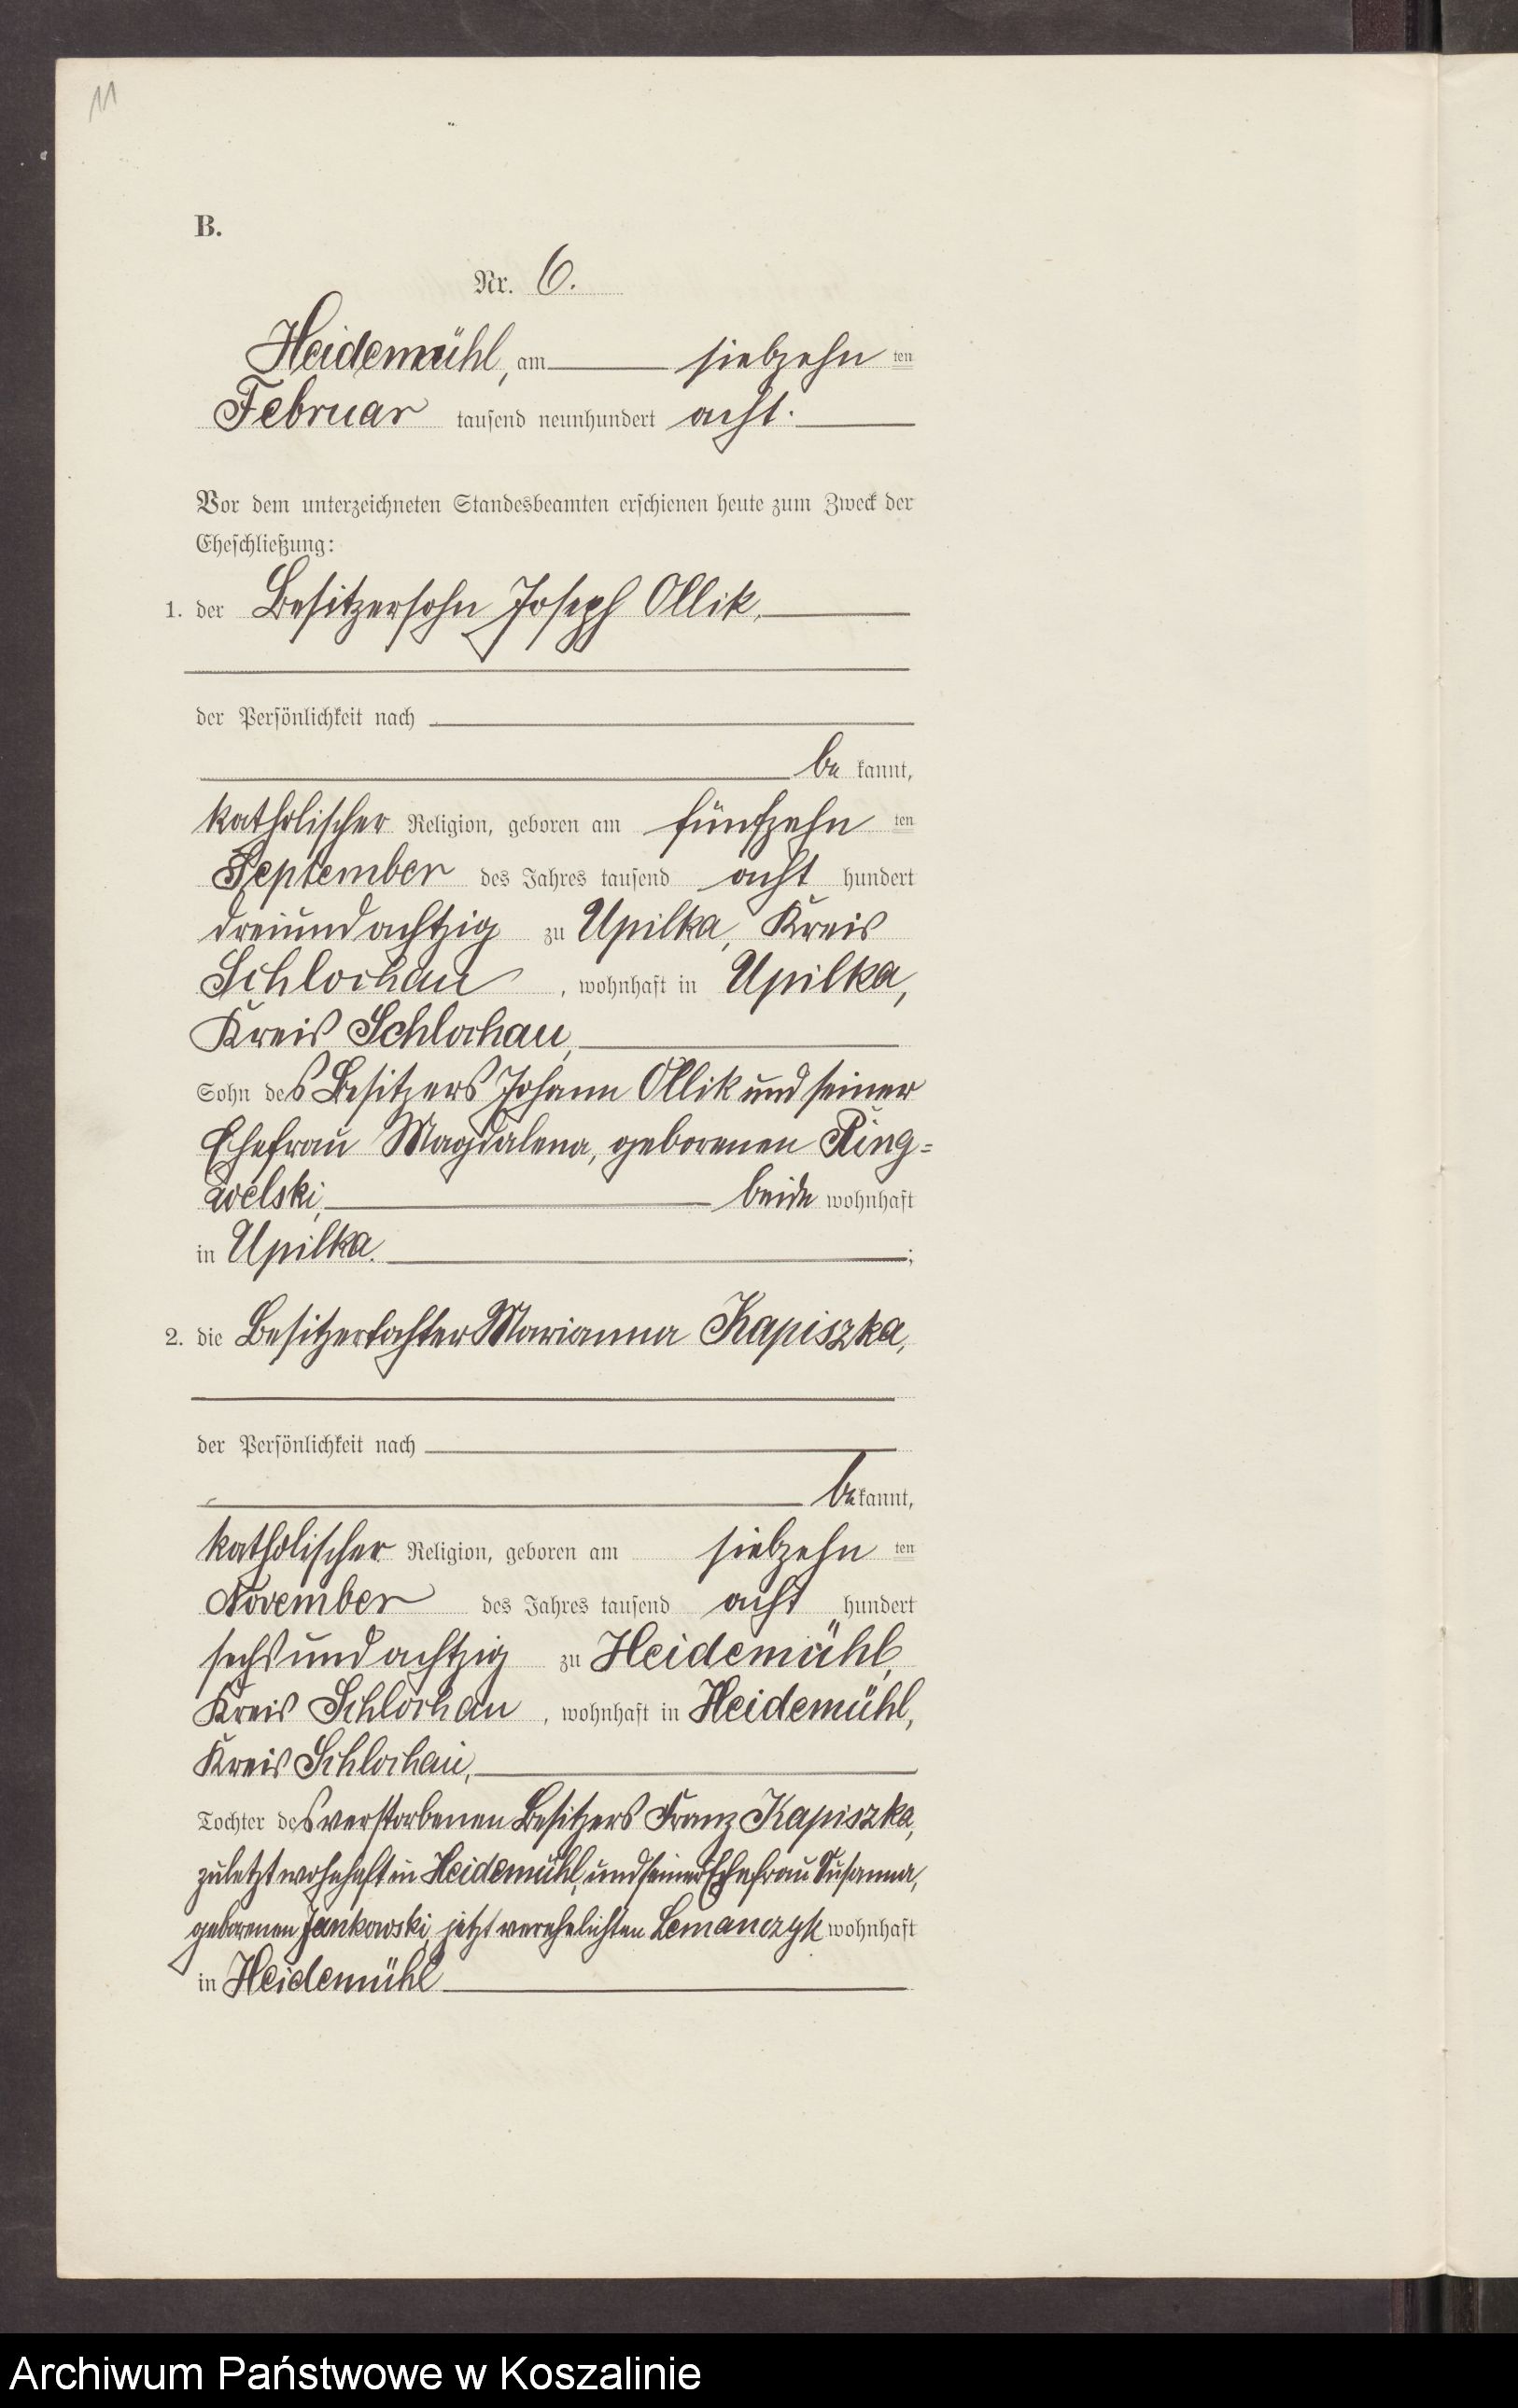 11
B.
Nr. 6.
Heidemühl, am siebzehn ten
Februar tausend neunhundert acht.
Vor dem unterzeichneten Standesbeamten erschienen heute zum Zweck der
Eheschließung:
1. der Besitzersohn Joseph Ollik,
der Persönlichkeit nach
be kannt,
katholischer Religion, geboren am fünfzehn ten
September des Jahres tausend acht hundert
dreiundachtzig zu Upilka, Kreis
Schlochau, wohnhaft in Upilka,
Kreis Schlochau,
Sohn des Besitzers Johann Ollik und seiner
Ehefrau Magdalena, geborenen Ring=
welski, beide wohnhaft
in Upilka. ;
2. die Besitzertochter Marianna Kapiszka,
der Persönlichkeit nach
be kannt,
katholischer Religion, geboren am siebzehn ten
November des Jahres tausend acht hundert
sechsundachtzig zu Heidemühl,
Kreis Schlochau, wohnhaft in Heidemühl,
Kreis Schlochau,
Tochter des verstorbenen Besitzers Franz Kapiszka,
zuletzt wohnhaft in Heidemühl, und seiner Ehefrau Susanna,
geborenen Jankowski, jetzt verehelichten Lemanczyk wohnhaft
in Heidemühl
Archiwum Państwowe w Koszalinie